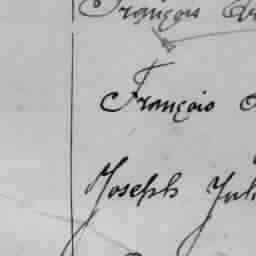 François
François
Joseph Jul